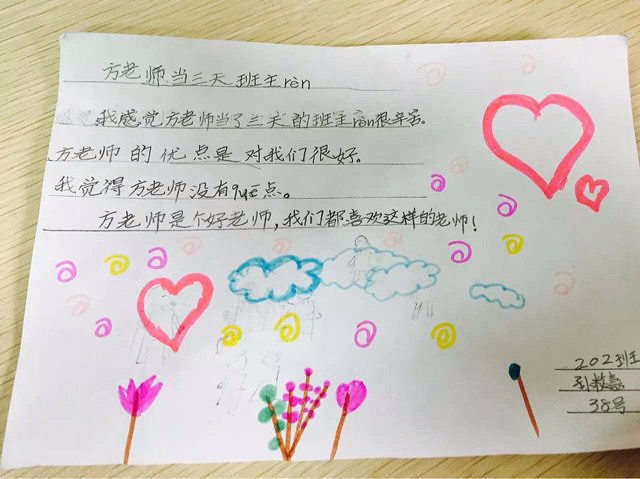 方老师当三天班主rèn
我感觉方老师当了三天的班主rèn很辛苦。
方老师的优点是对我们很好。
我觉得方老师没有quē点。
方老师是个好老师,我们都喜欢这样的老师!
202班
38号